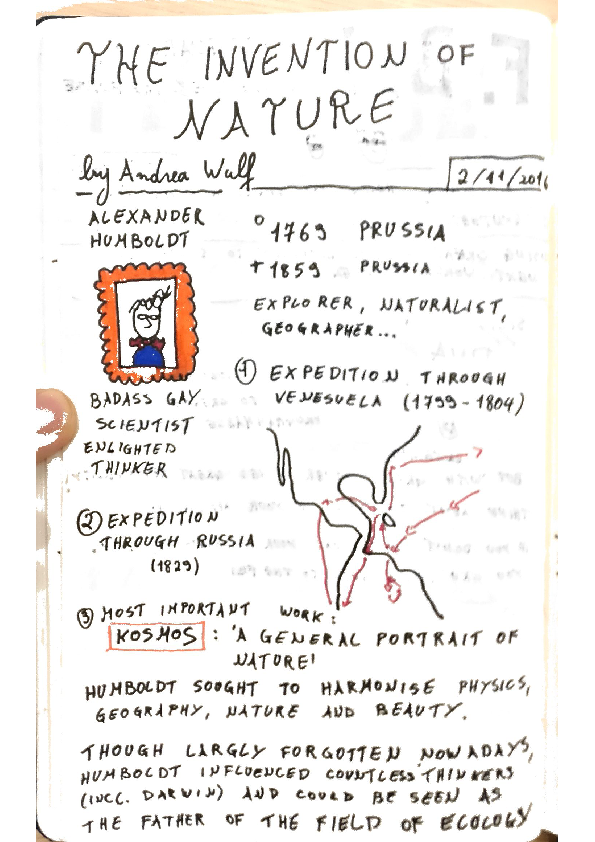 THE INVENTION OF
NATURE
by Andrea Wulf
2/11/2016
ALEXANDER
HUMBOLDT
° 1769 PRUSSIA
+ 1859 PRUSSIA
EXPLORER, NATURALIST,
GEOGRAPHER...
BADASS GAY
SCIENTIST
ENLIGHTED
THINKER
① EXPEDITION THROUGH
VENESUELA (1799-1804)
② EXPEDITION
THROUGH RUSSIA
(1829)
③ MOST IMPORTANT WORK:
KOSMOS : 'A GENERAL PORTRAIT OF
NATURE'
HUMBOLDT SOUGHT TO HARMONISE PHYSICS,
GEOGRAPHY, NATURE AND BEAUTY.
THOUGH LARGLY FORGOTTEN NOWADAYS,
HUMBOLDT INFLUENCED COUNTLESS THINKERS
(INCL. DARWIN) AND COULD BE SEEN AS
THE FATHER OF THE FIELD OF ECOLOGY